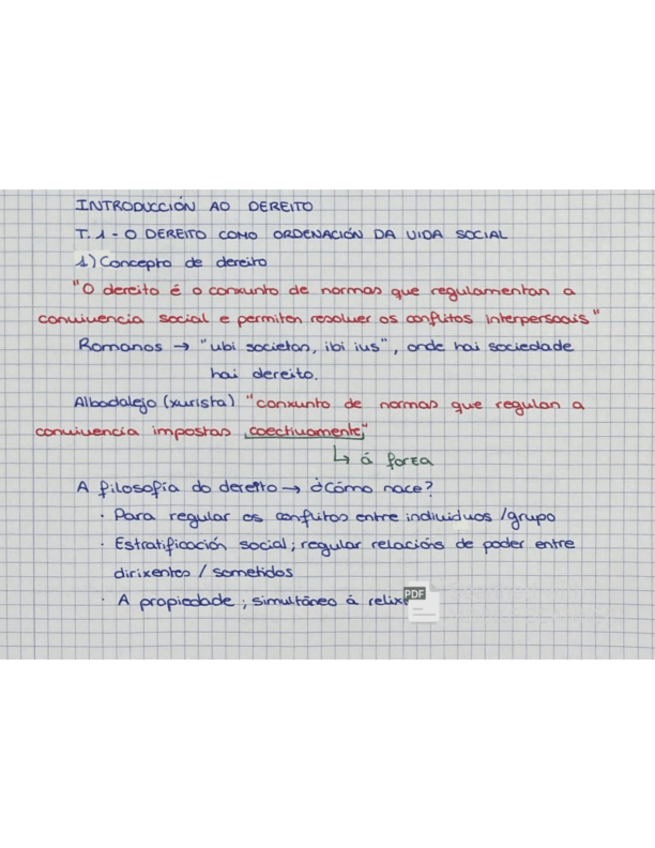 INTRODUCCIÓN AO DEREITO
T. 1 - O DEREITO COMO ORDENACIÓN DA VIDA SOCIAL
1) Concepto de dereito
"O dereito é o conxunto de normas que regulamentan a
convivencia social e permiten resolver os conflitos interpersoais"
Romanos → "ubi societas, ibi ius", onde hai sociedade
hai dereito.
Albadalejo (xurista) "conxunto de normas que regulan a
convivencia impostas coectivamente"
↳ á forza
A filosofía do dereito → ¿Cómo nace?
· Para regular os conflitos entre individuos / grupo
· Estratificación social; regular relacións de poder entre
dirixentes / sometidos
· A propiedade; simultáneo á
PDF